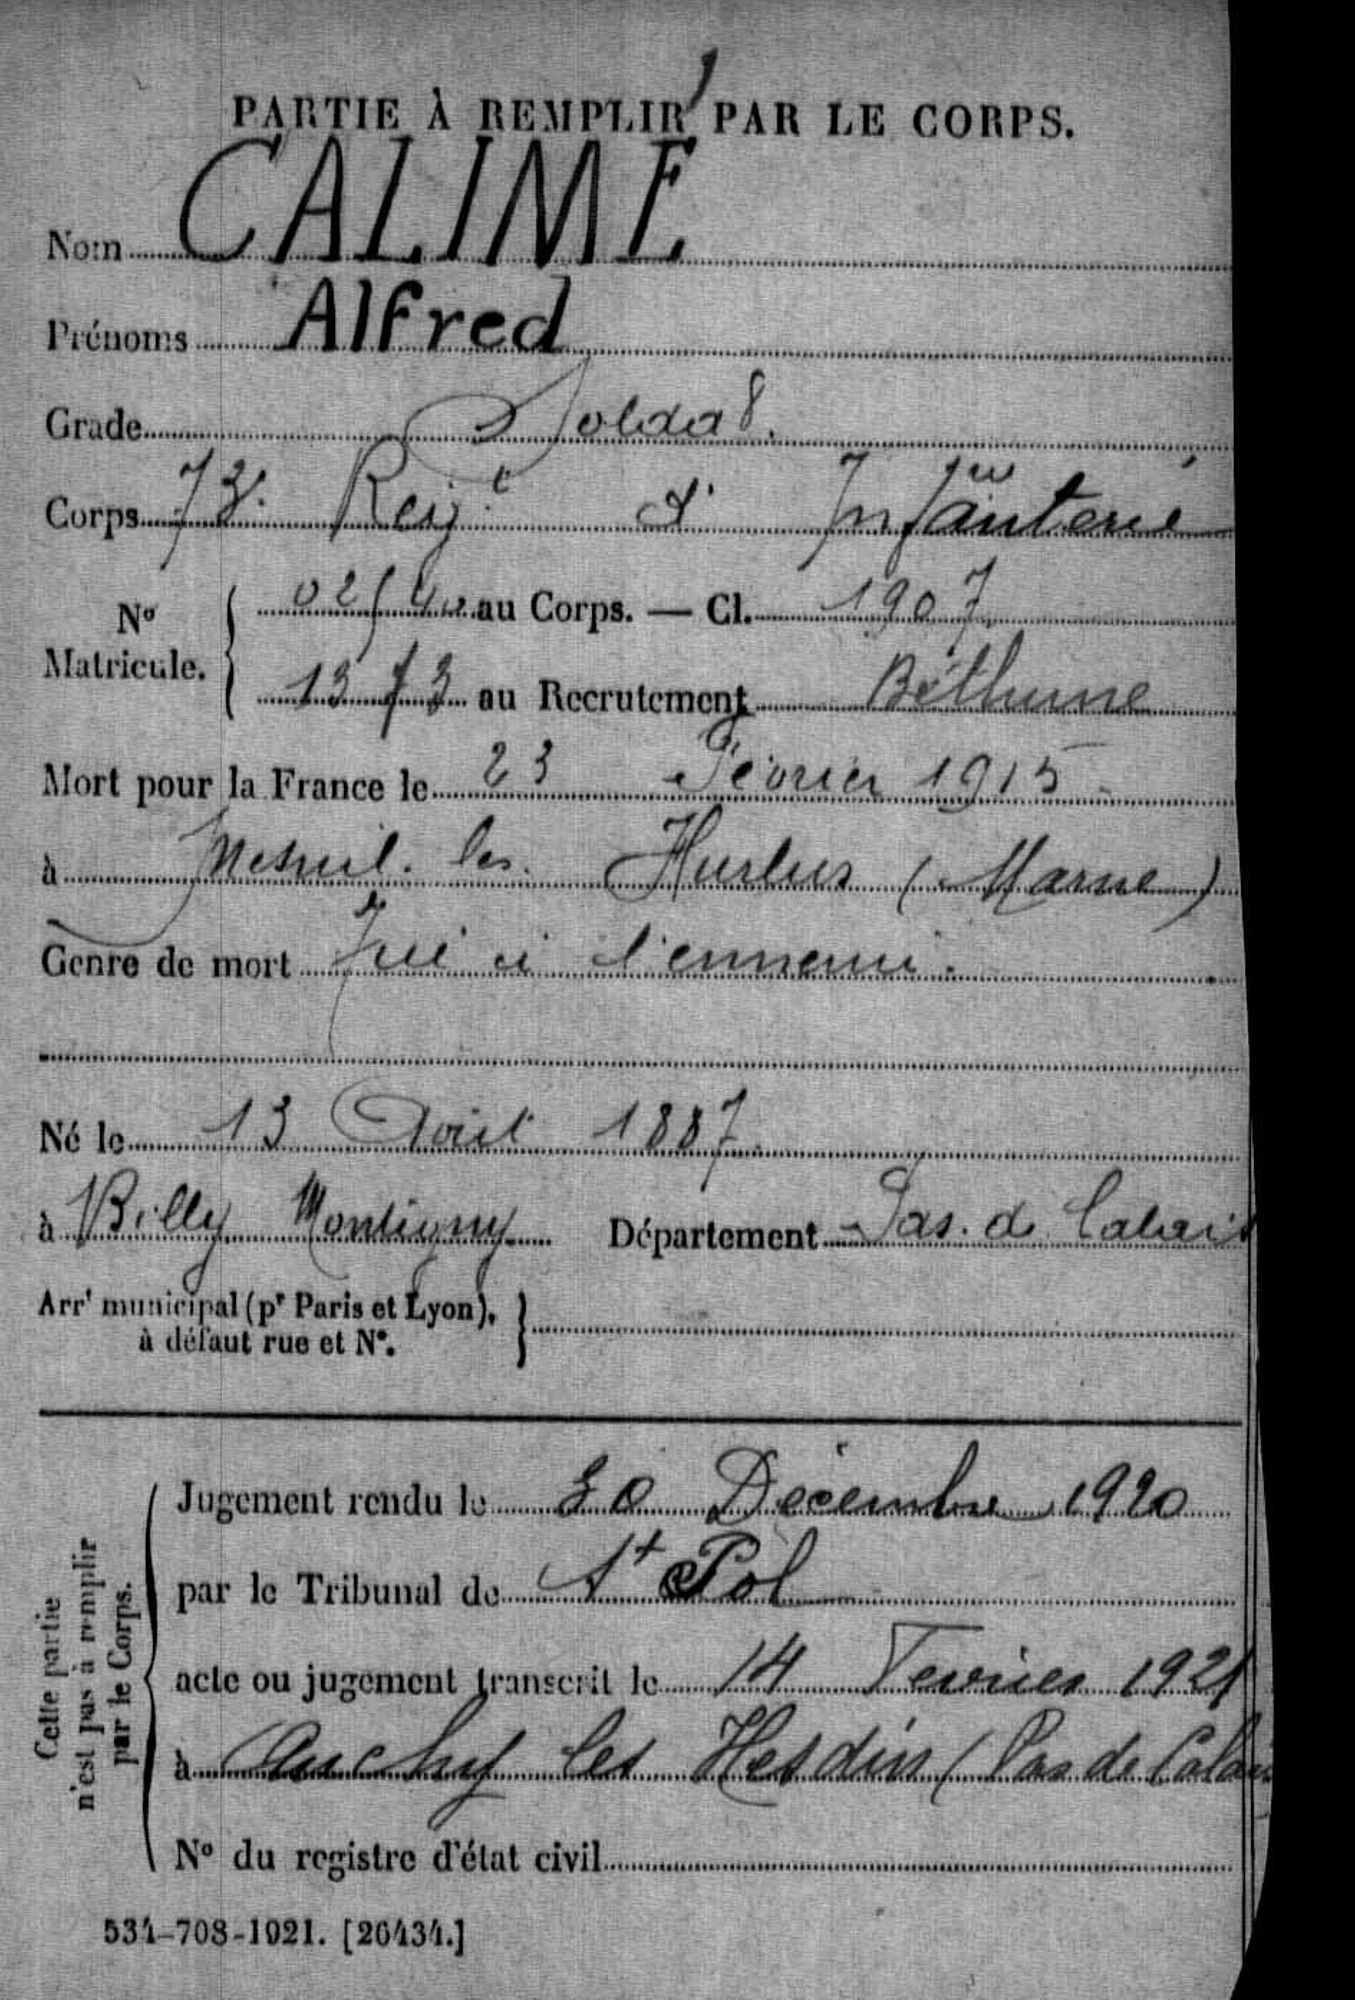 PARTIE À REMPLIR PAR LE CORPS.
Nom CALIME
Prénoms Alfred
Grade Soldat.
Corps 73e Regt d' Infanterie
No Matricule. au Corps. — Cl. 1907
1373 au Recrutement Béthune
Mort pour la France le 23 Février 1915
à Mesnil. les. Hurlus (Marne)
Genre de mort Tué à l'ennemi.
Né le 13 Août 1887.
à Billy Montigny Département Pas. de Calais
Arrt municipal (pr Paris et Lyon),
à défaut rue et No.
Cette partie
n'est pas à remplir
par le Corps.
Jugement rendu le 30 Décembre 1920
par le Tribunal de St Pol
acte ou jugement transcrit le 14 Fevrier 1921
à Auchy les Hesdin (Pas de Calais
No du registre d'état civil
534-708-1921. [26434.]